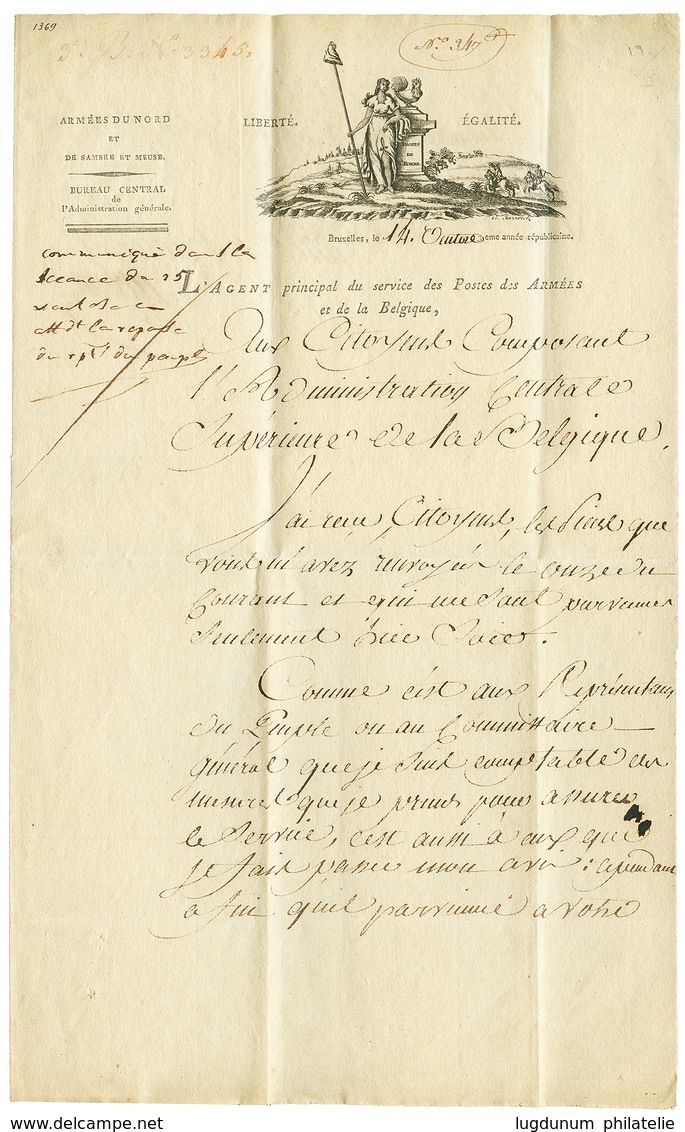 1369
3e. Don. No. 3345.
No. 347
19
ARMÉES DU NORD
ET
DE SAMBRE ET MEUSE.
BUREAU CENTRAL
de
l'Administration générale.
LIBERTÉ.
ÉGALITÉ.
DROITS
DE
L'HOMME
Bruxelles, le 14. Ventose 3eme année républicaine.
communiqué dans la
Séance du 25
ventose
att.dt la reponse
du rpt. du peuple
L'AGENT principal du service des Postes des ARMÉES
et de la Belgique,
Aux Citoyens Composant
l'Administration Centrale
Supérieure de la Belgique.
J'ai reçu, Citoyens, les pieces que
vous m'avez renvoyées le onze du
Courant et qui me sont parvenues
Seulement hier Soir.
Comme c'est aux Représentans
du Peuple ou au Commissaire
général que je suis comptable des
mesures que je prens pour assurer
le Service, c'est aussi à eux que
je fais passer mon avis : cependant
afin qu'il parvienne a votre
delcampe.net
lugdunum philatelie